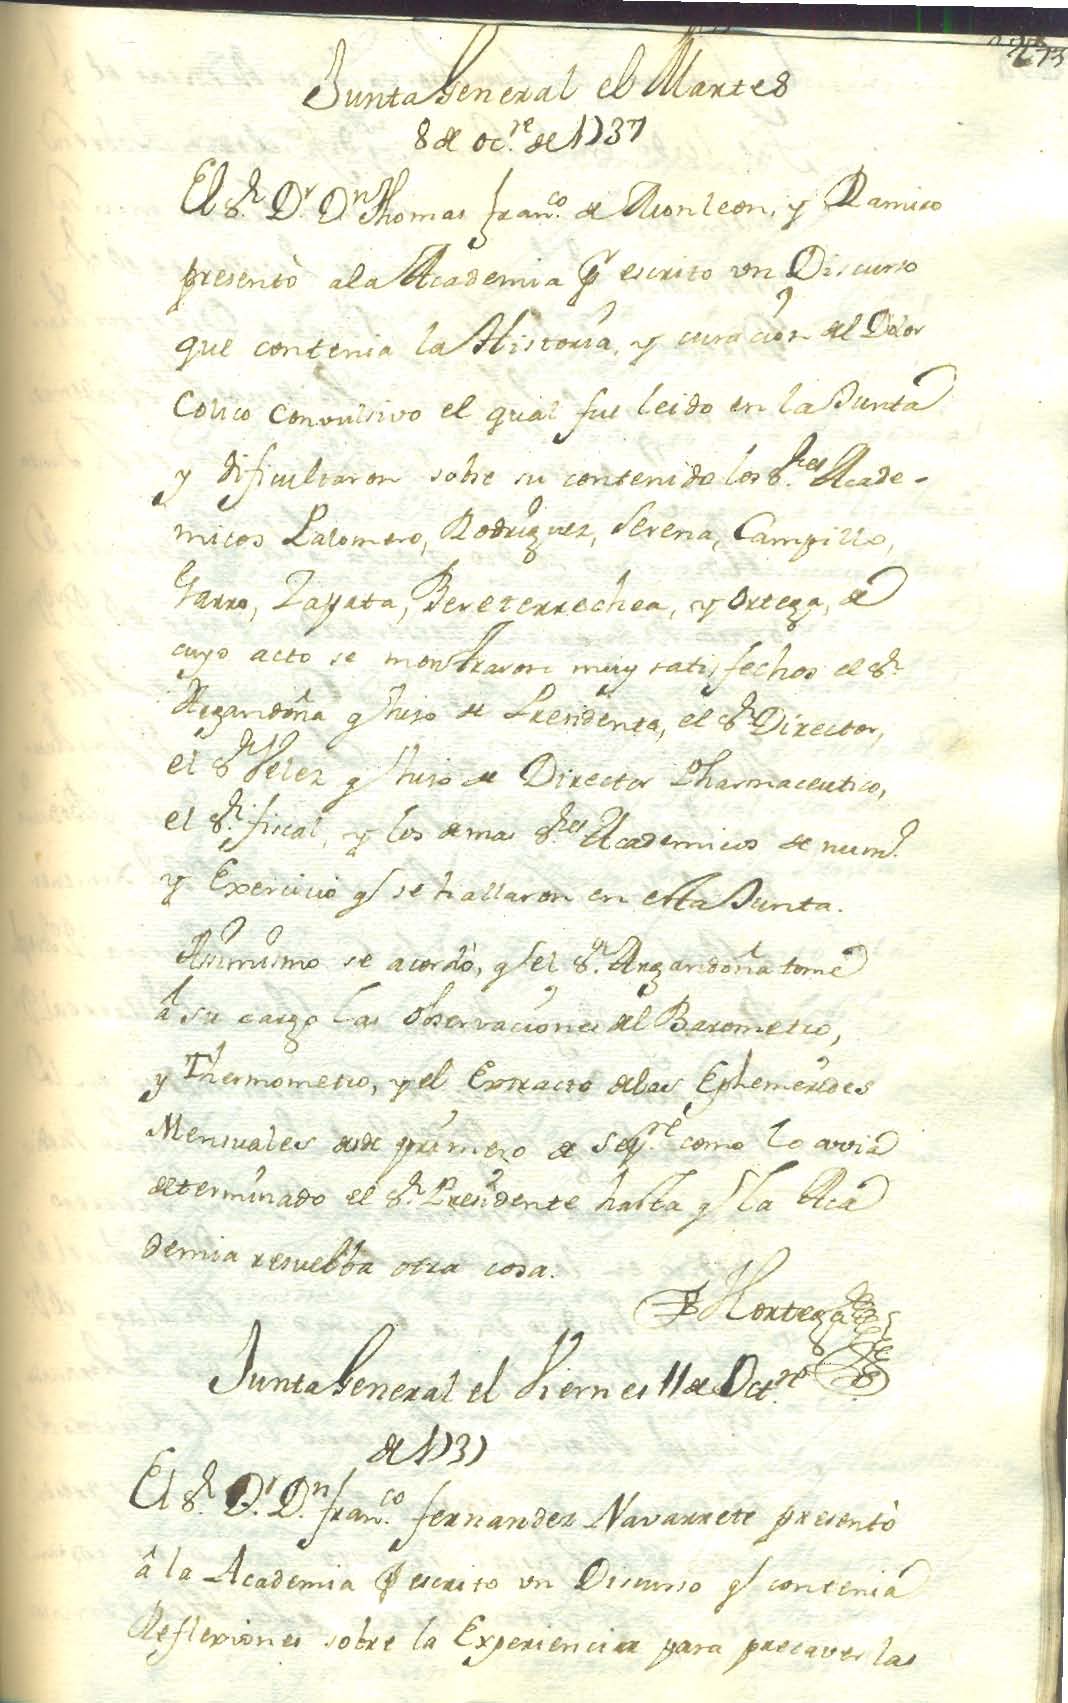 273
Junta General el Martes
8 de oc.re de 1737
El S.r D.r D.n Thomas Fran.co de Monleon, y Ramiro
presentò a la Academia p.r escrito un Discurso
que contenia la Historia, y curacion del Dolor
Colico Convulsivo el qual fue leido en la Junta
y dificultaron sobre su contenido los S.res Acade-
micos Palomero, Rodriguez, Serena, Campillo,
Garro, Zapata, Bereterrechea, y Ortega, de
cuyo acto se mostraron muy satisfechos el S.r
Argandoña q hizo de Presidente, el S.r Director,
el S.r Velez q hizo de Director Pharmaceutico,
el S.r fiscal, y los demas S.res Academicos de num.o
y Exercicio q se hallaron en esta Junta.
Asimismo se acordò, q el S.r Argandoña tome
â su cargo las Observaciones del Barometro,
y Thermometro, y el Extracto de las Ephemerides
Mensuales desde primero de Sep.re como lo avia
determinado el S.r Presidente hasta q la Aca
demia resuelba otra cosa.
Hortega
Junta General el Viernes 11 de Oct.re
de 1737
El S.r D.r D.n Fran.co Fernandez Navarrete presentò
â la Academia p.r escrito un Discurso q contenia
Reflexiones sobre la Experiencia para precaver las